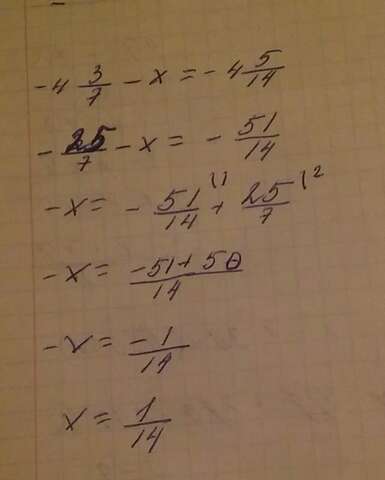 -4 3/7 - x = -4 5/14
-25/7 - x = - 51/14
-x = - 51/14 \1 + 25/7 \2
-x = -51+50/14
-x = -1/14
x = 1/14